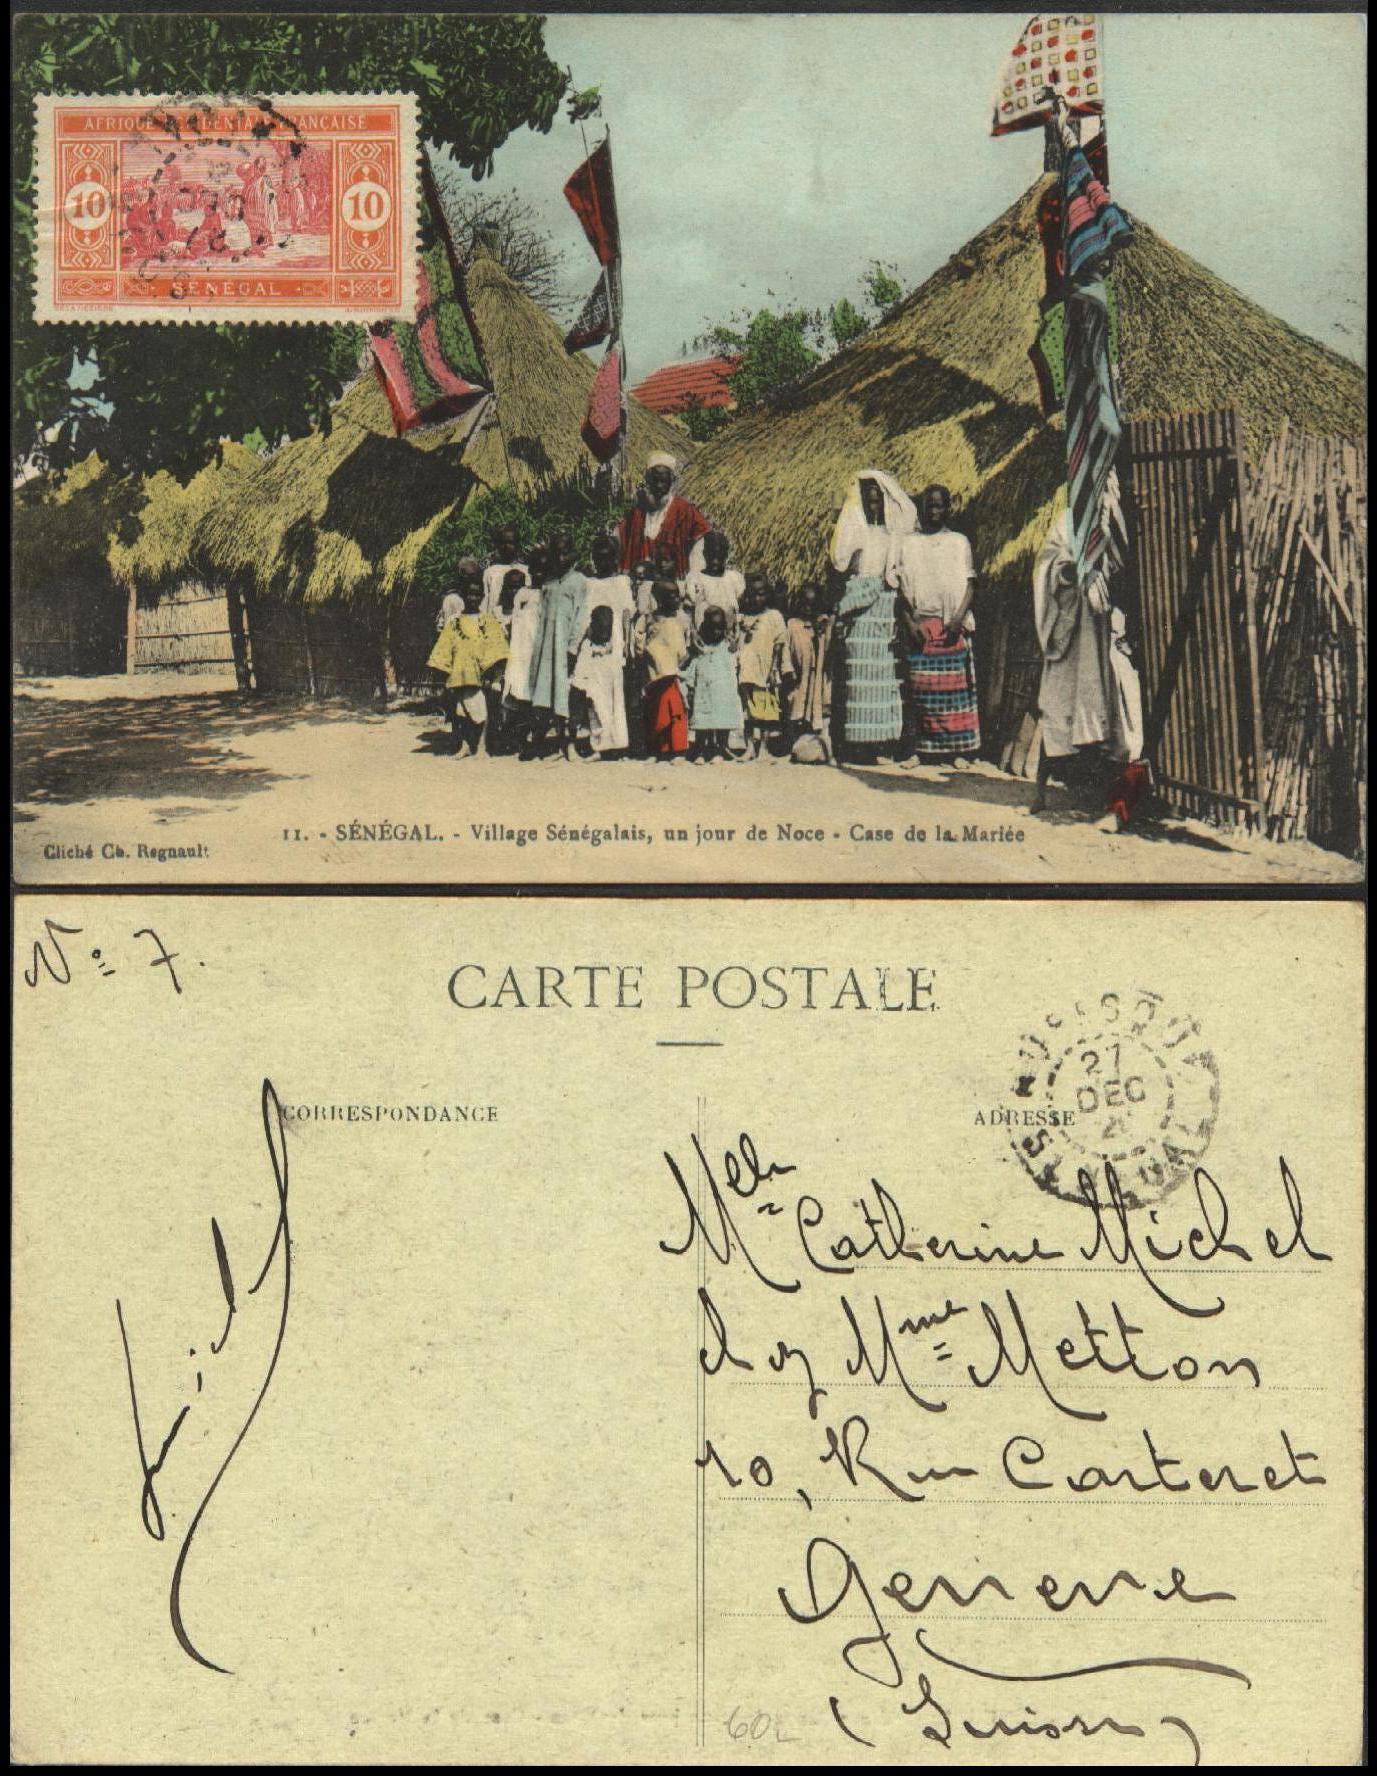 AFRIQUE OCCIDENTALE FRANÇAISE
10 10
SÉNÉGAL
11. - SÉNÉGAL. - Village Sénégalais, un jour de Noce - Case de la Mariée
Cliché Ch. Regnault
Nº 7.
CARTE POSTALE
27
DEC
SENEGAL
CORRESPONDANCE
ADRESSE
Melle Catherine Michel
chez Mme Metton
10, Rue Carteret
Geneve
(Suisse)
60